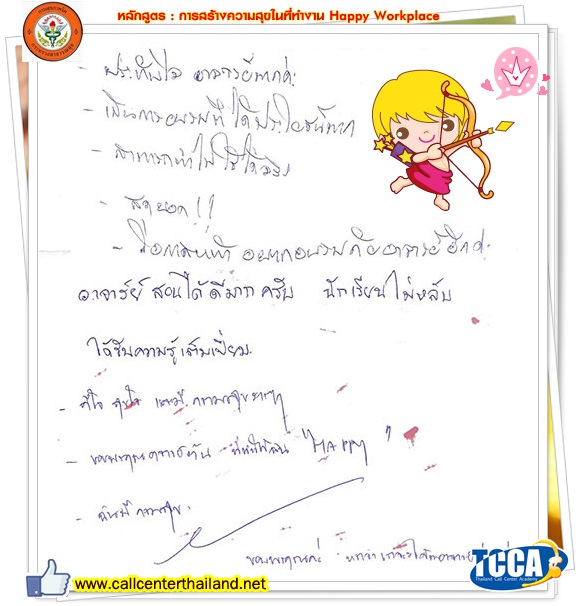 หลักสูตร : การสร้างความสุขในที่ทำงาน Happy Workplace
- ประทับใจ อาจารย์มากค่ะ
- เป็นการอบรมที่ได้ประโยชน์มาก
- สามารถนำไปใช้ได้จริง
- สุดยอด !!
- โอกาสหน้า อยากอบรมกับอาจารย์อีกค่ะ
อาจารย์ สอนได้ดีมาก ครับ นักเรียนไม่หลับ
ได้รับความรู้เต็มเปี่ยม
- ดีใจ สุขใจ และมีความสุขมากๆ
- ขอบคุณอาจารย์ "HAPPY"
- ฉันมีความสุข
ขอบพระคุณค่ะ
www.callcenterthailand.net
TCCA
Thailand Call Center Academy